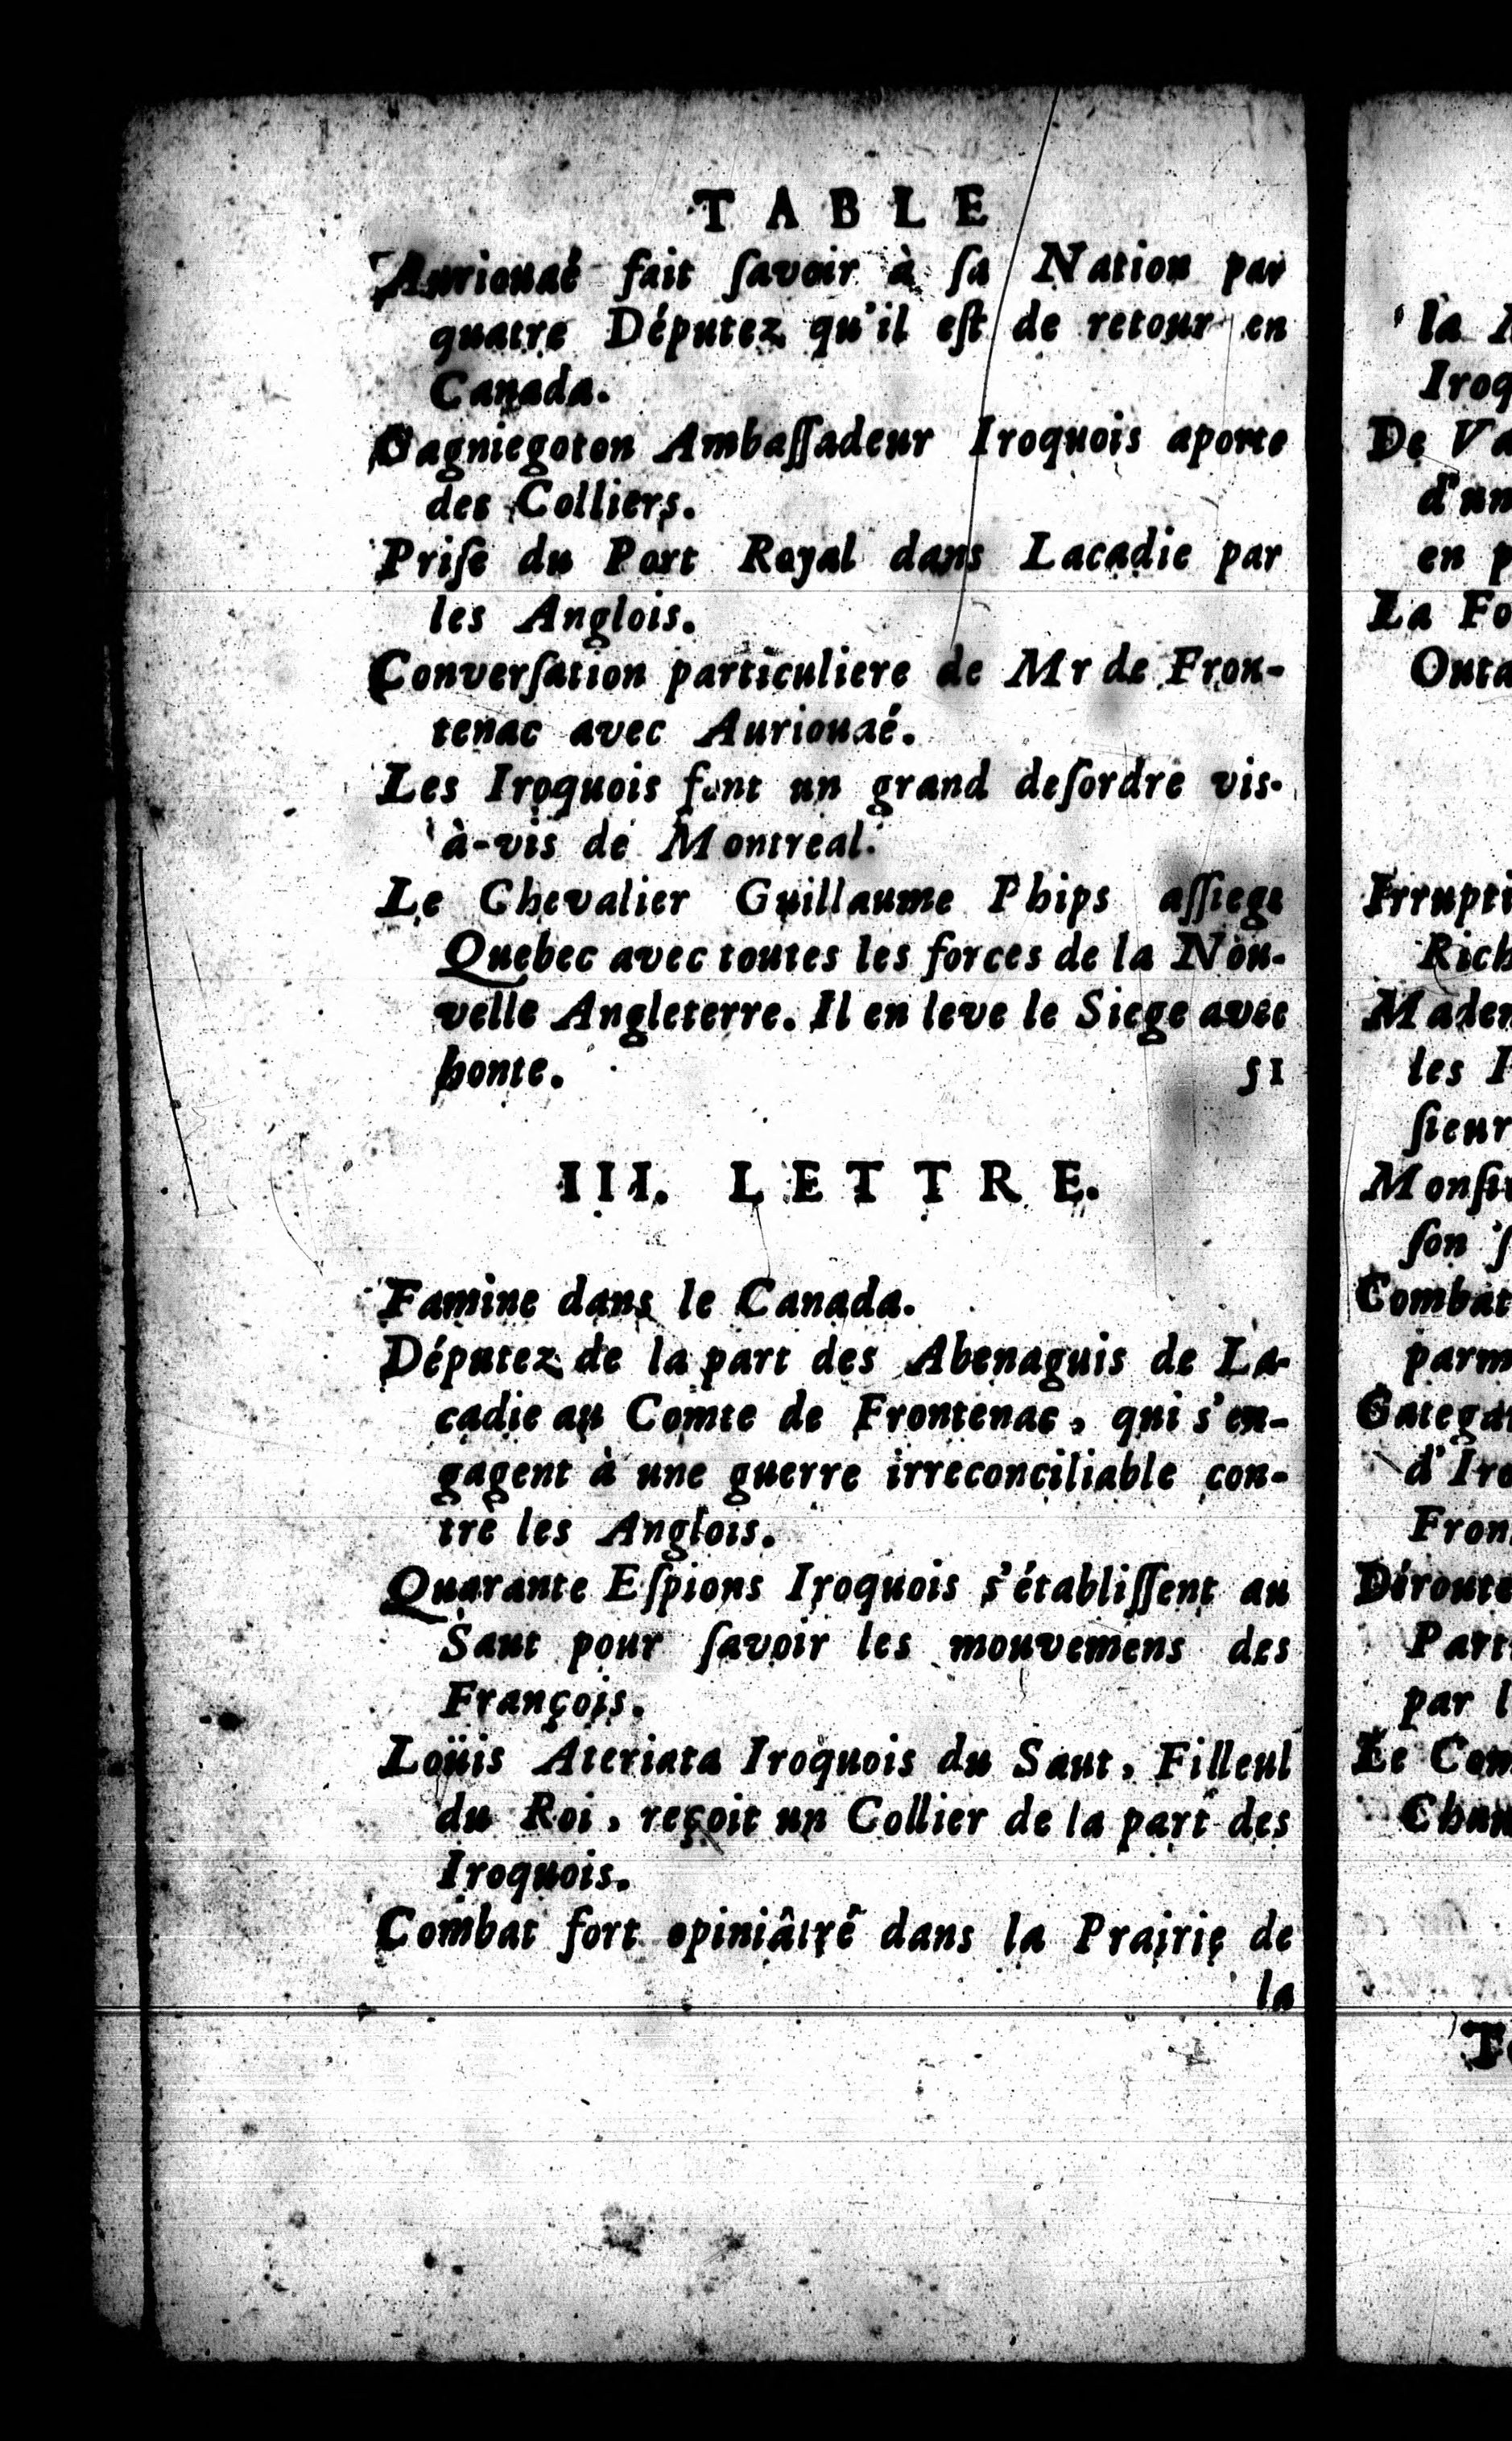 TABLE
Auriouaé fait ſavoir à ſa Nation par
quatre Députez qu'il eſt de retour en
Canada.
Gagniegoton Ambaſſadeur Iroquois aporte
des Colliers.
Priſe du Port Royal dans Lacadie par
les Anglois.
Converſation particuliere de Mr de Fron-
tenac avec Auriouaé.
Les Iroquois font un grand deſordre vis-
à-vis de Montreal.
Le Chevalier Guillaume Phips aſſiege
Quebec avec toutes les forces de la Nou-
velle Angleterre. Il en leve le Siege avec
honte. 51
III. LETTRE.
Famine dans le Canada.
Députez de la part des Abenaguis de La-
cadie au Comte de Frontenac, qui s'en-
gagent à une guerre irreconciliable con-
tre les Anglois.
Quarante Eſpions Iroquois s'établiſſent au
Saut pour ſavoir les mouvemens des
François.
Loüis Ateriata Iroquois du Saut, Filleul
du Roi, reçoit un Collier de la part des
Iroquois.
Combat fort opiniâtré dans la Prairie de
la
la
Iroq
De Va
d'un
en p
La Fo
Onta
Irrupti
Rich
Madem
les
ſieur
Monſi
ſon
Combat
parm
Gatega
d'Iro
Fron
Déroute
Part
par l
Le Com
Chan